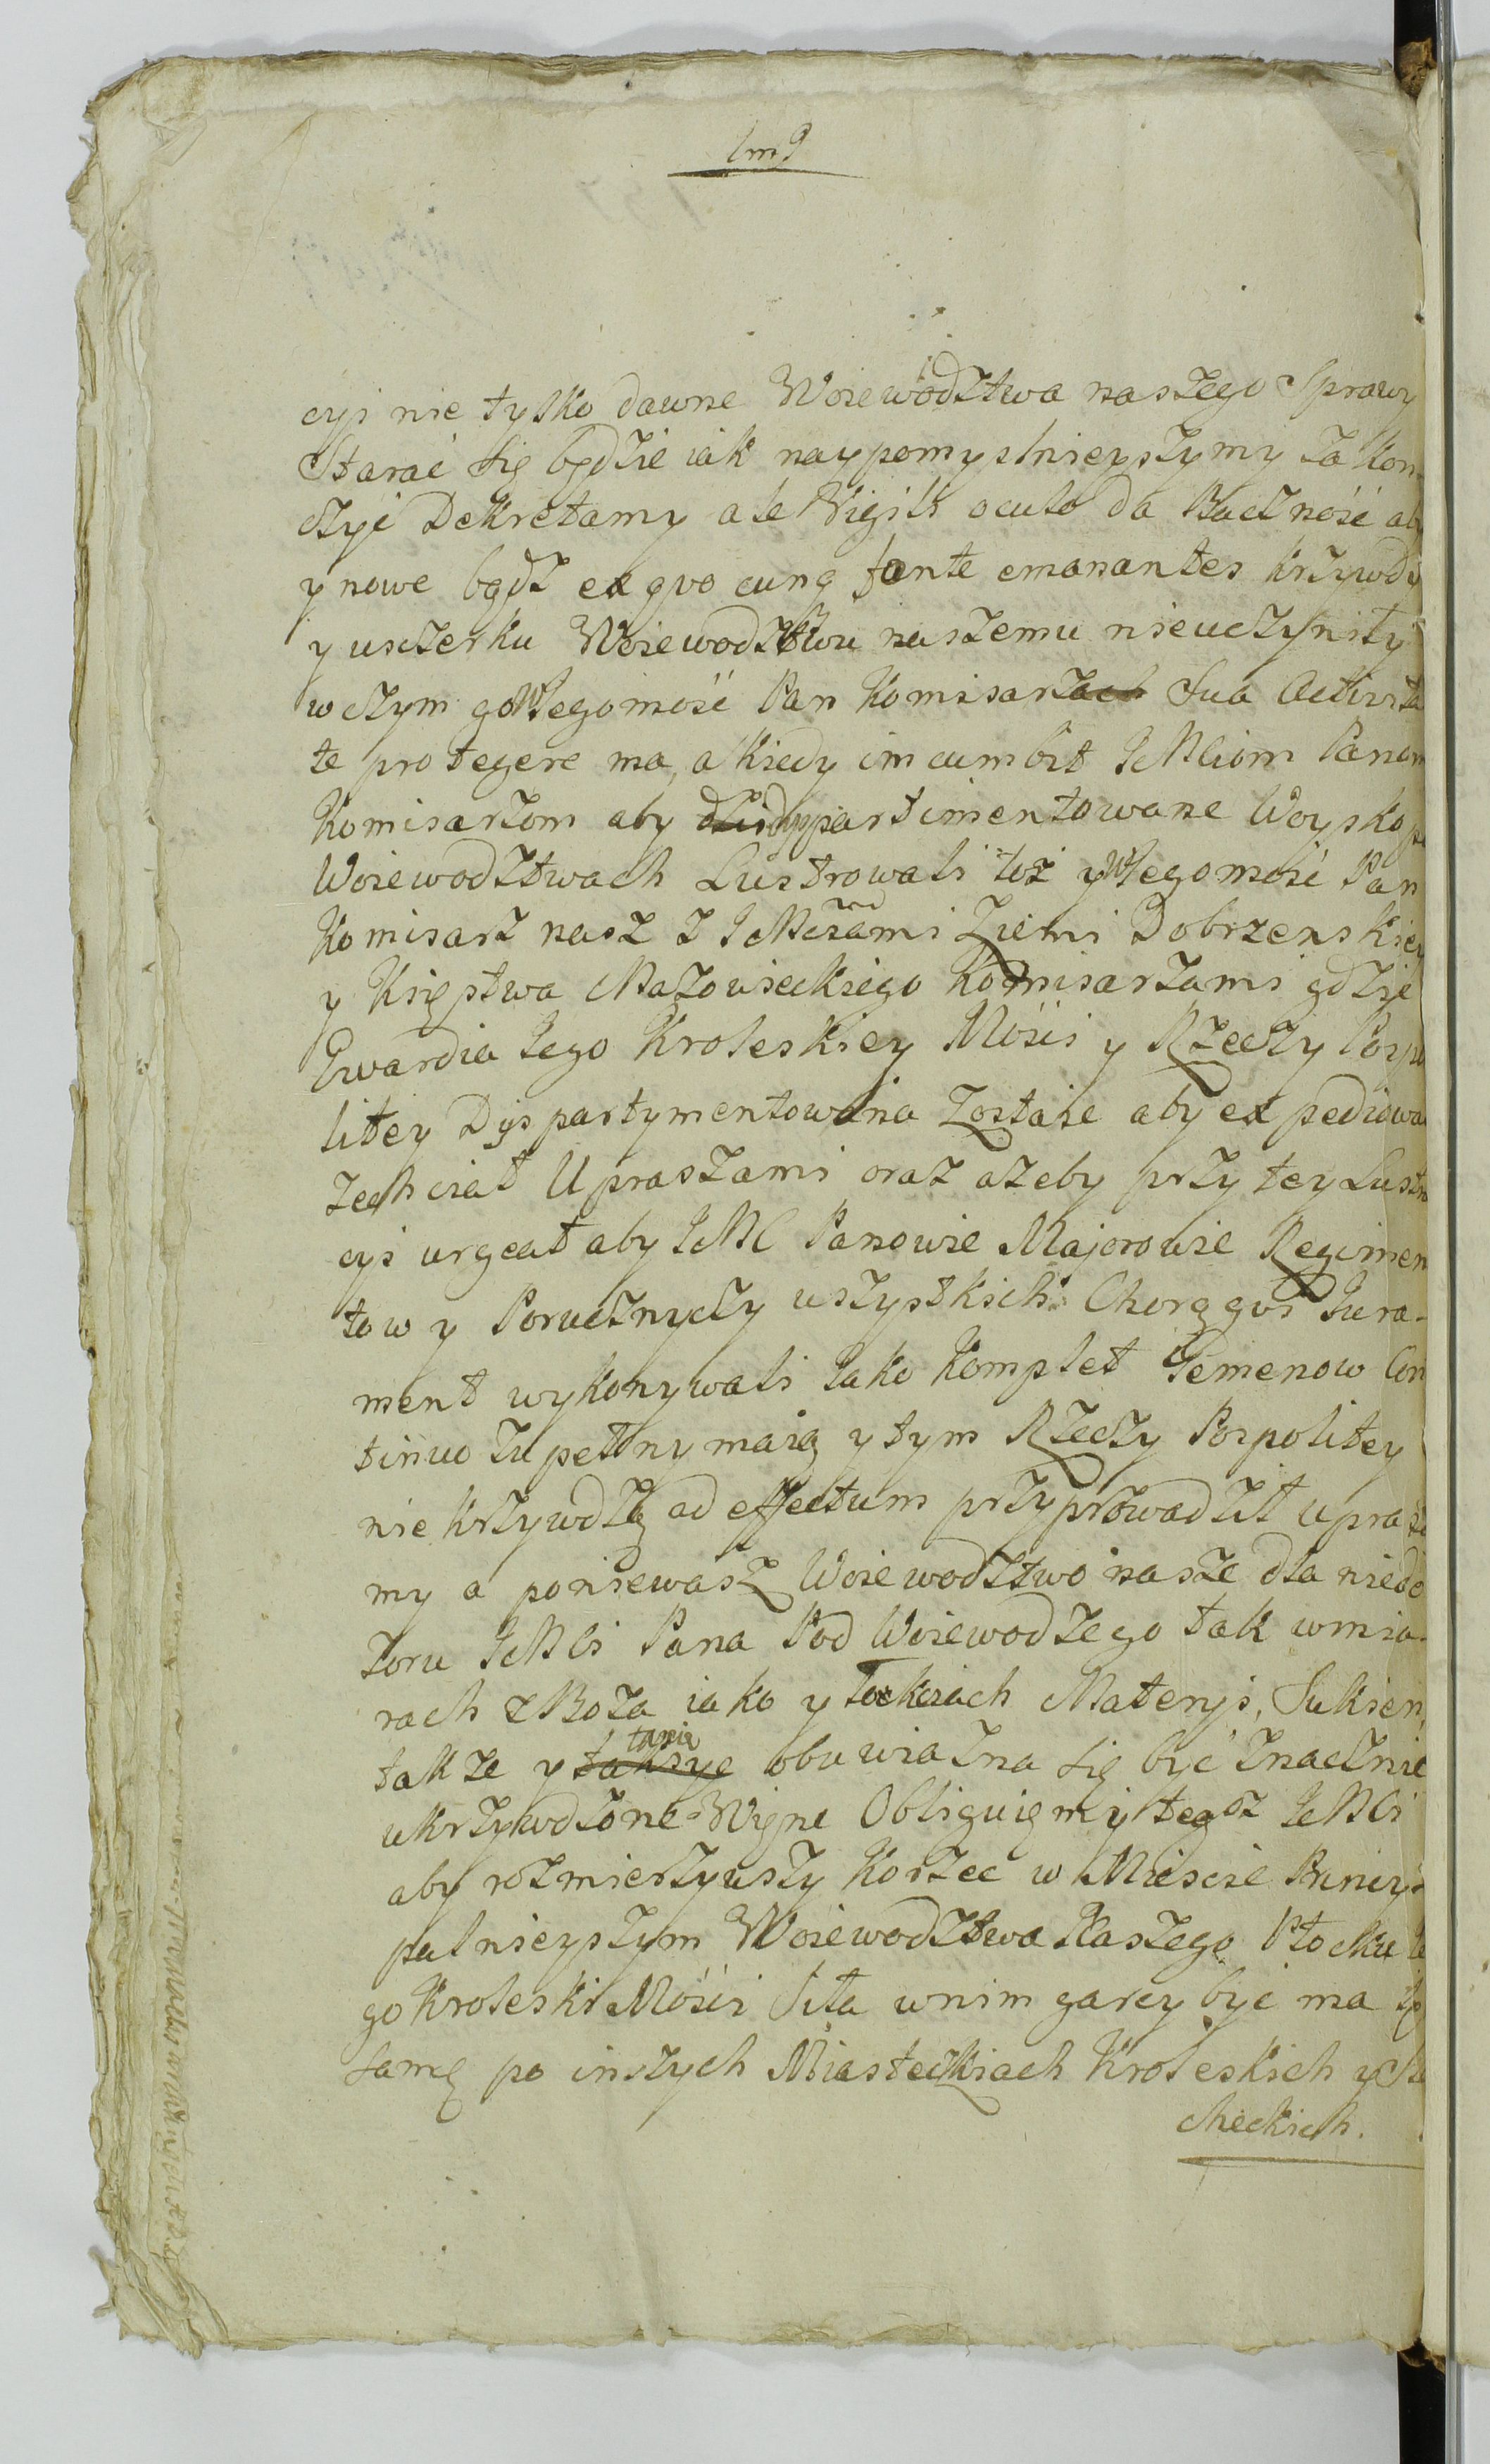 cyi nie tylko dawne Woiewodztwa naszego Sprawy
Starać się będzie iak naypomyslnieyszymy zakon-
czyć Dekretamy ale Vigili oculo da Baczność aby
y nowe bądz ex quo cunq fonte emanantes krzywdy
y uszczerku Woiewodztwu naszemu nieuczyniły
w czym go Wlegomość Pan Komisarz Sua Activita
te protegere ma, a kiedy imcumbit IchMciom Panom
Komisarzom aby dyppartimentowane Woysko po
Woiewodztwach Lustrowali też y Wlegomość Pan
Komisarz nasz z IchMciami Ziemi Dobrzenskiey
y Księstwa Mazowieckiego Komisarzami gdzie
Gwardia Iego Kroleskiey Mości y Rzeczy Pospo
litey Dyspartymentowana Zostaie aby expediowa
zechciał Upraszami oraz azeby przy tey Lustra
cyi urgeat aby IchMC Panowie Majorowie Regimen
tow y Porucznyczy uszystkich Chorągwi Iura-
ment wykonywali Iako Komplet Gemenow Con
tinuo zupełny maią y tym Rzeczy Pospolitey
nie krzywdzą ad effectum przyprowadził uprasza
my a poniewasz Woiewodztwo nasze dla niedo
zoru IchMCi Pana Pod Woiewodzego tak w mia-
rach zBoża iako y łokciach Materyi, Sukien,
takze y taxią obuwia zna się być znacznie
ukrzywdzone Więc Obliguięmy tegoz IchMCi
aby rozmierzywszy Korzec w Mieście Princy-
palnieyszym Woiewodztwa Naszego Płocku Ie
go Kroleski Mości Siła wnim garcy być ma tp
samę po inszych Miasteczkiach Kroleskich y Szla
checkich.